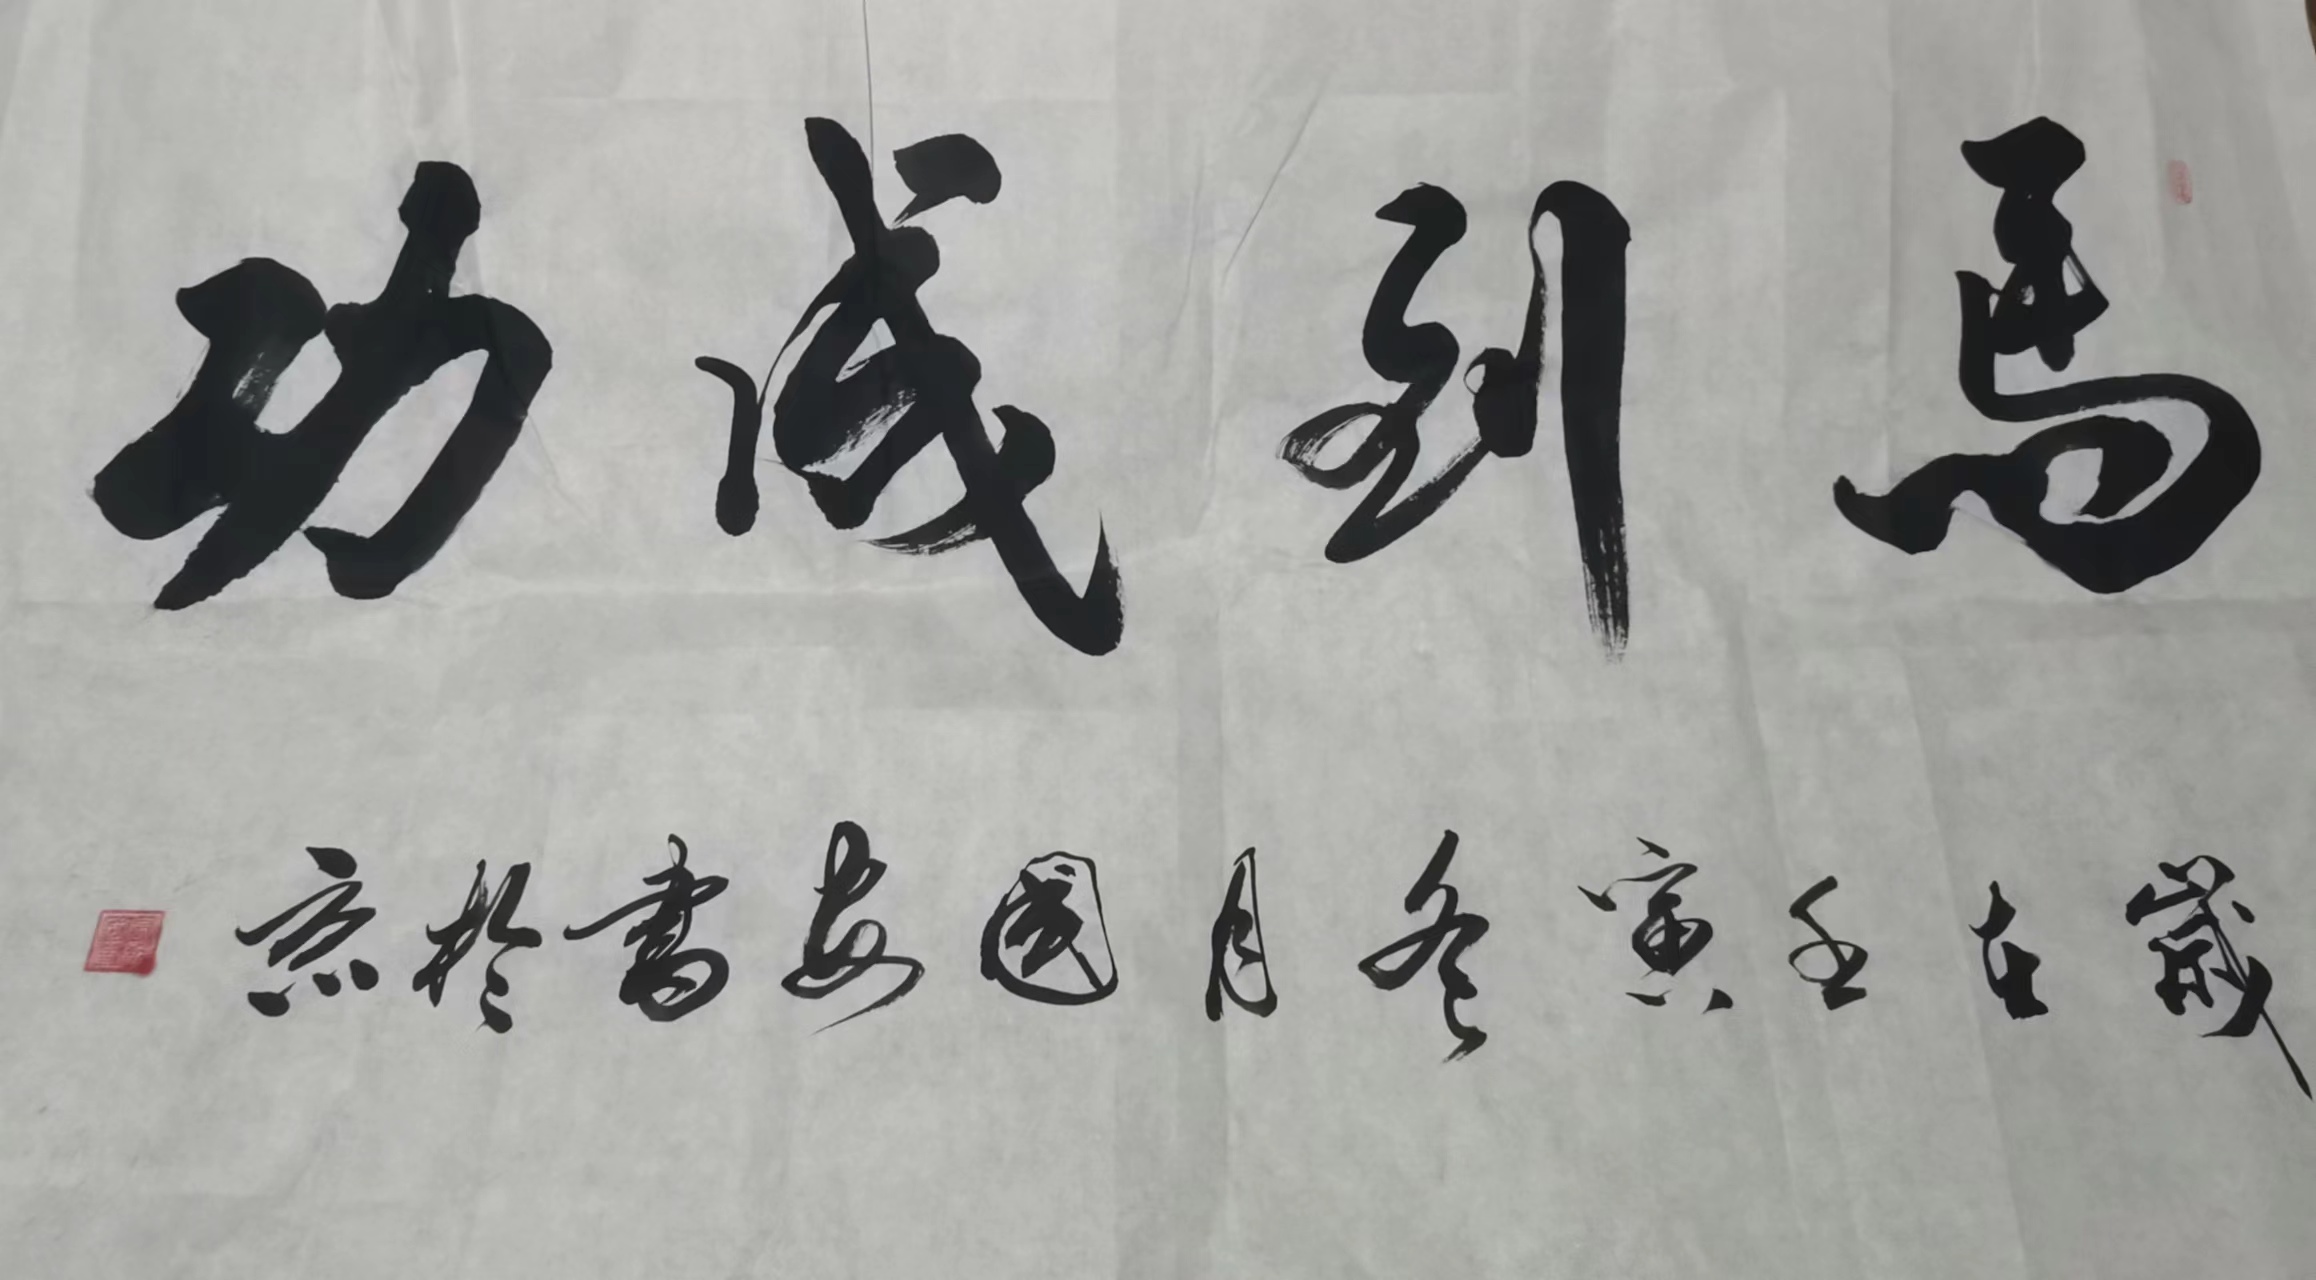 馬到成功
歲在壬寅冬月國安書於京